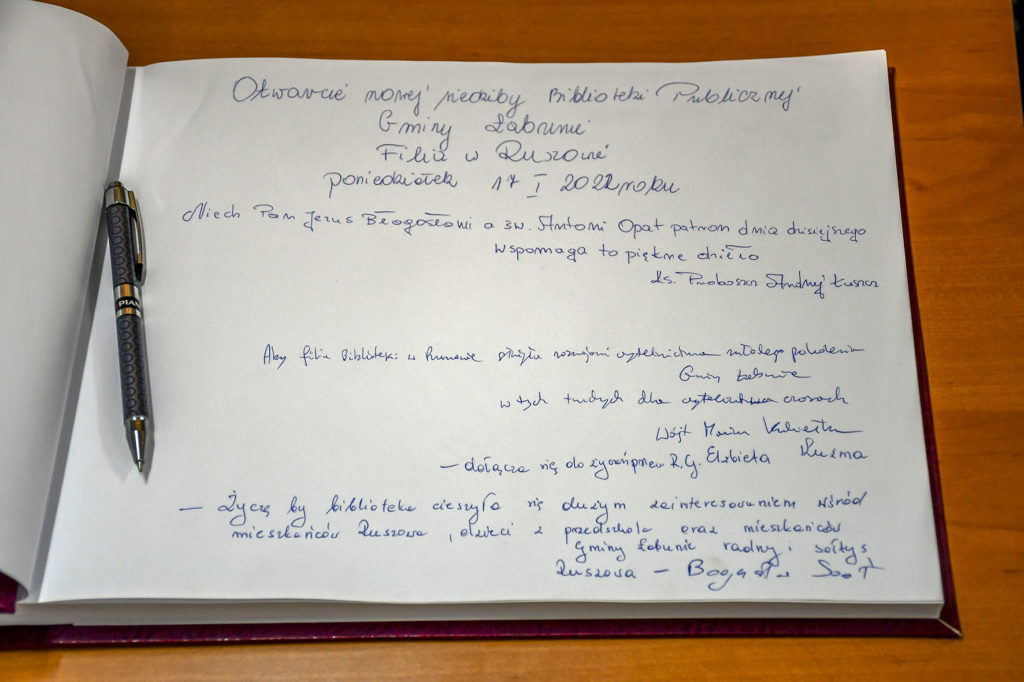 Otwarcie nowej siedziby Biblioteki Publicznej
Gminy Łabunie
Filia w Ruszowie
poniedziałek 17 I 2022 roku
Niech Pan Jezus Błogosłowi a św. Antoni Opat patron dnia dzisiejszego
wspomaga to piękne dzieło
ks. Proboszcz Andrzej Łuszcz
Aby filia Biblioteki w Ruszowie służyła rozwojowi czytelnictwa młodego pokolenia
Gminy Łabunie
w tych trudnych dla czytelnictwa czasach
Wójt Mariusz
– dołącza się do życzeń R.G. Elżbieta Kuźma
– Życzę by biblioteka cieszyła się dużym zainteresowaniem wśród
mieszkańców Ruszowa, dzieci z przedszkola oraz mieszkańców
Gminy Łabunie radny i sołtys
Ruszowa –
PIAN